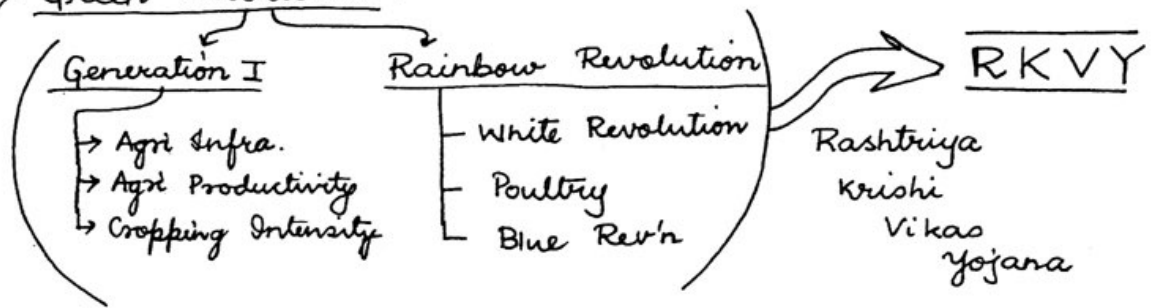 Green
Generation I
→ Agri Infra.
→ Agri Productivity
→ Cropping Intensity
Rainbow Revolution
White Revolution
Poultry
Blue Rev'n
RKVY
Rashtriya
Krishi
Vikas
Yojana